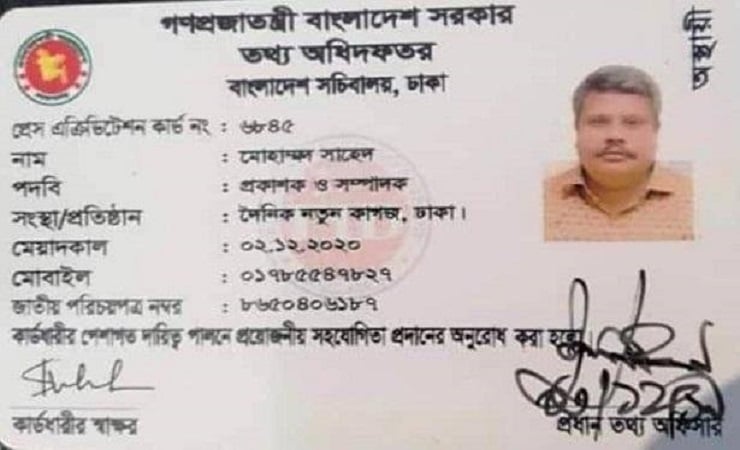 গণপ্রজাতন্ত্রী বাংলাদেশ সরকার
তথ্য অধিদফতর
বাংলাদেশ সচিবালয়, ঢাকা
অস্থায়ী
প্রেস এক্রিডিটেশন কার্ড নং : ৬৮৪৫
নাম : মোহাম্মদ সাহেদ
পদবি : প্রকাশক ও সম্পাদক
সংস্থা/প্রতিষ্ঠান : দৈনিক নতুন কাগজ, ঢাকা।
মেয়াদকাল : ০২.১২.২০২০
মোবাইল : ০১৭৮৫৫৪৭৮২৭
জাতীয় পরিচয়পত্র নম্বর : ৮৬৫০৪০৬১৮৭
কার্ডধারীর পেশাগত দায়িত্ব পালনে প্রয়োজনীয় সহযোগিতা প্রদানের অনুরোধ করা হলো।
কার্ডধারীর স্বাক্ষর
প্রধান তথ্য অফিসার